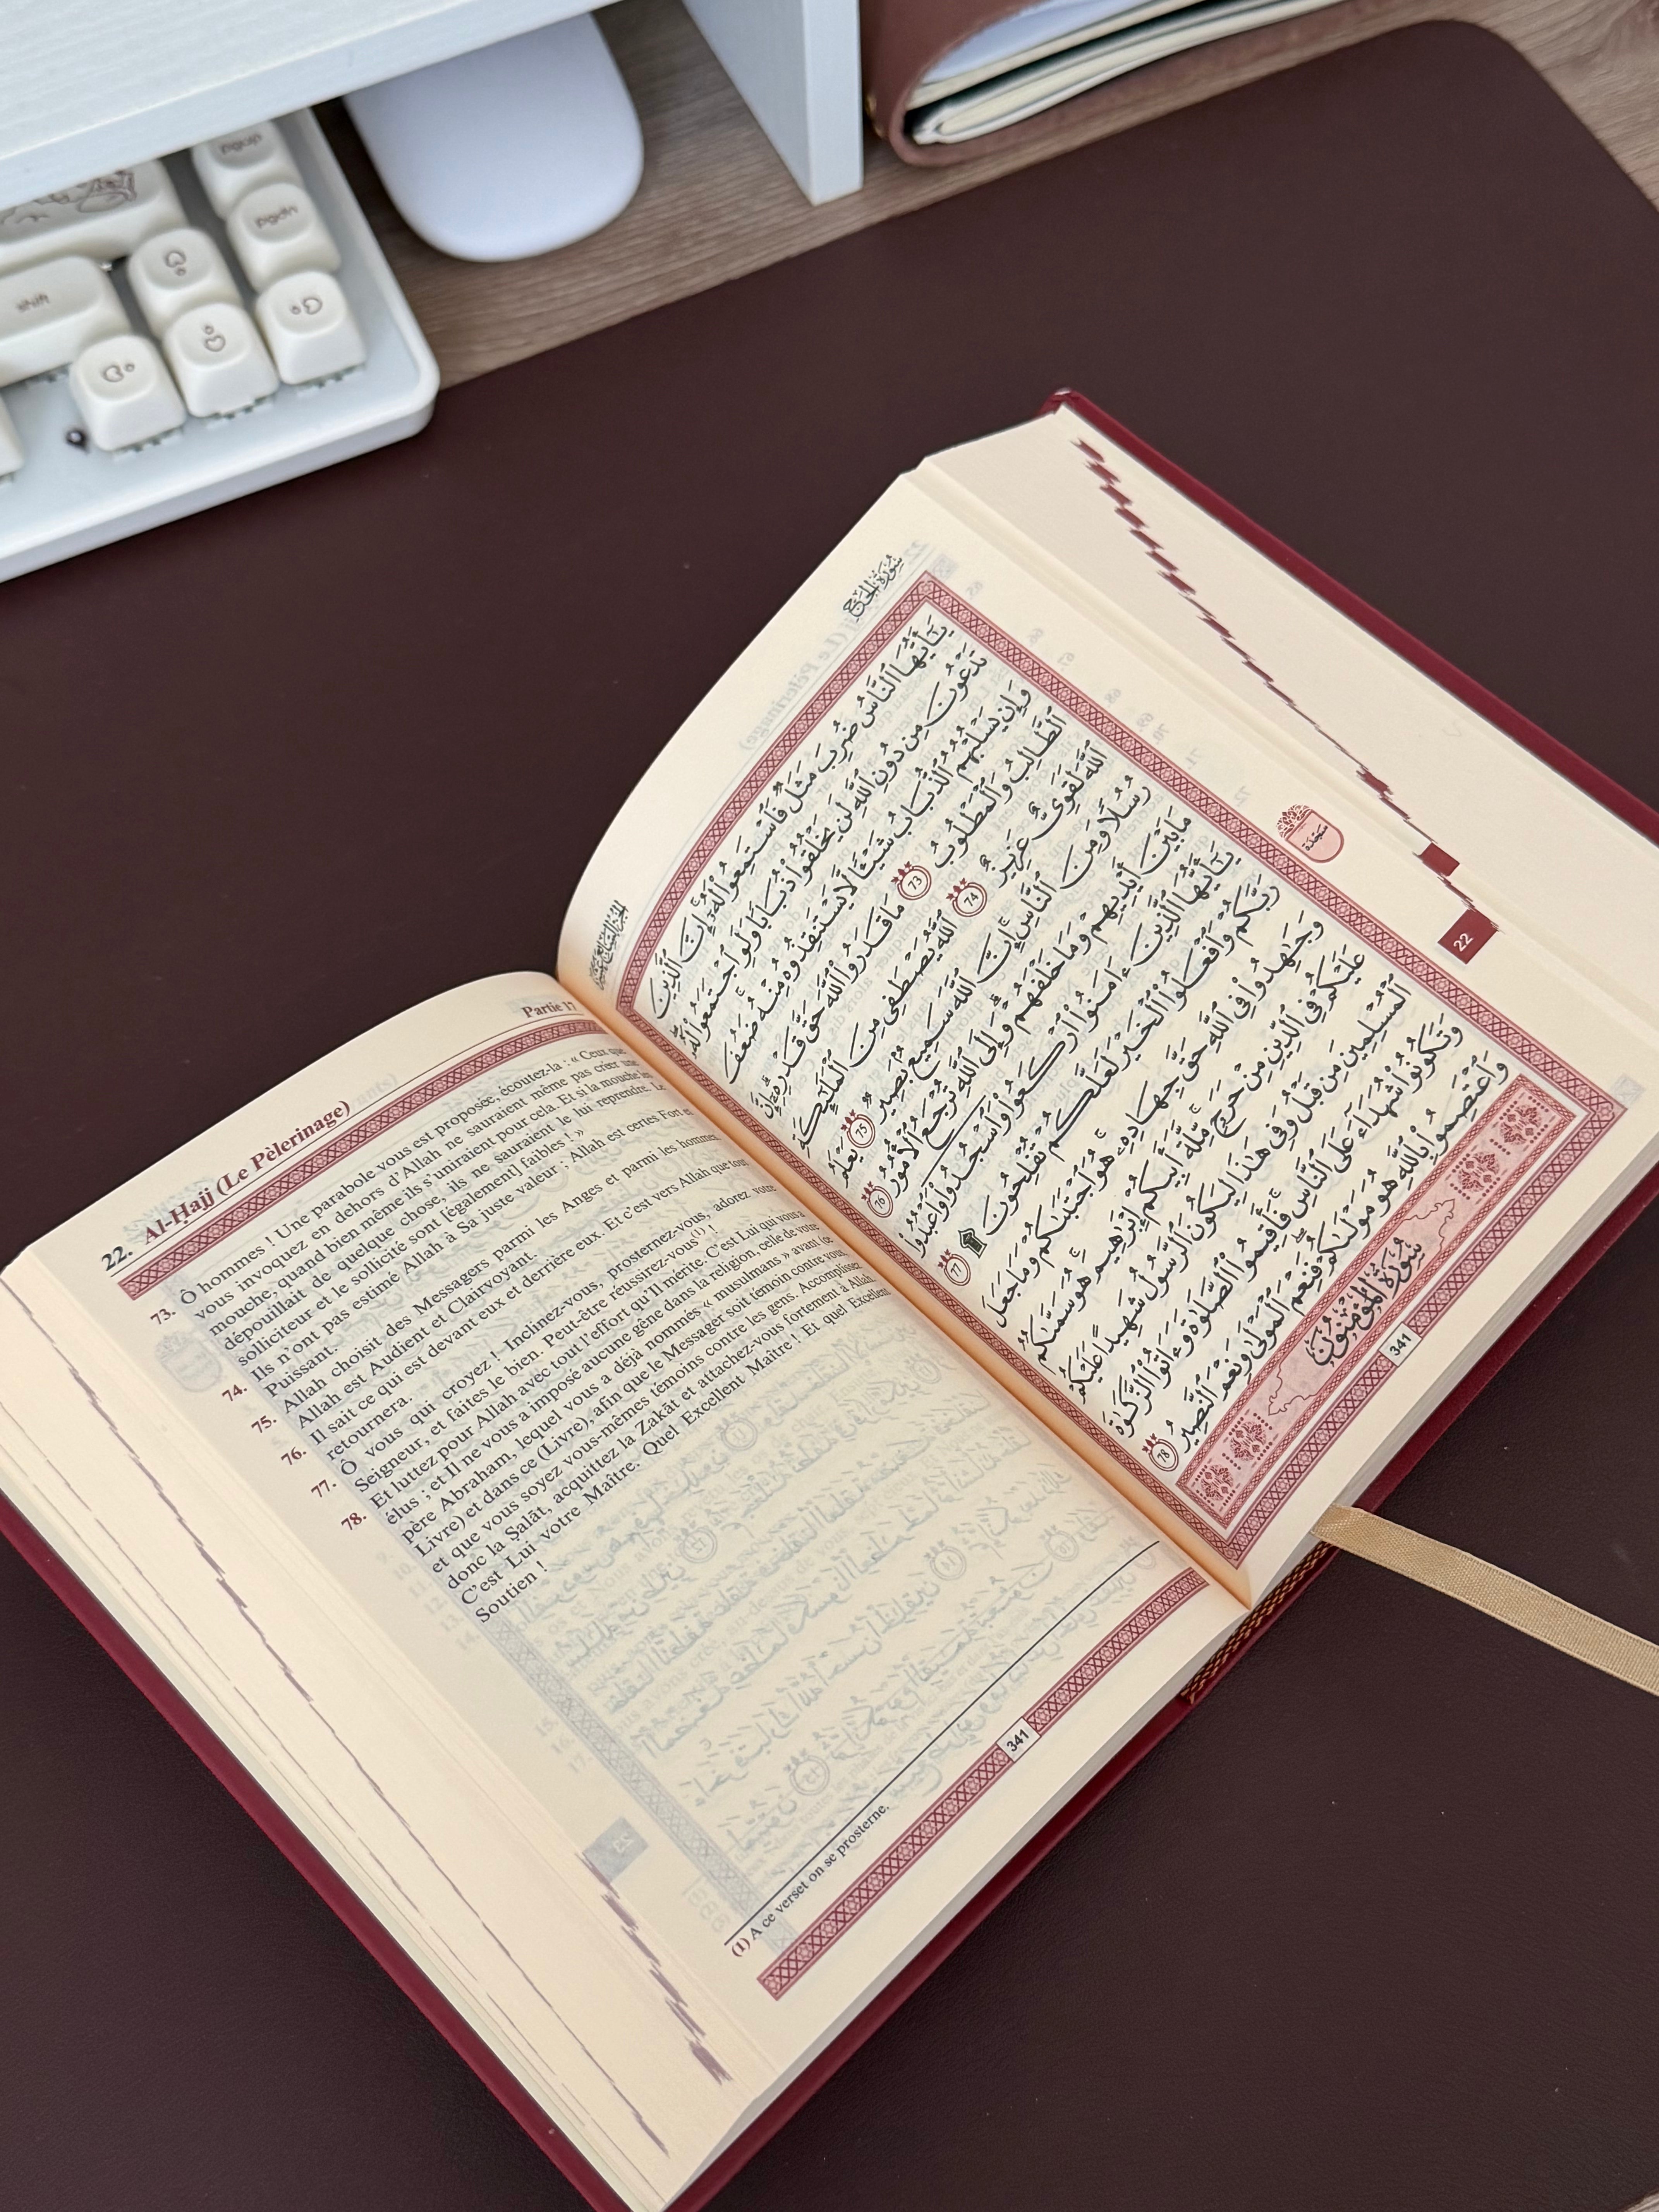 pgup
pgdn
shift
Partie 17
22. Al-Ḥajj (Le Pèlerinage)
73. Ô hommes ! Une parabole vous est proposée, écoutez-la : « Ceux que
vous invoquez en dehors d’Allah ne sauraient même pas créer une
mouche, quand bien même ils s’uniraient pour cela. Et si la mouche les
dépouillait de quelque chose, ils ne sauraient le lui reprendre. Le
solliciteur et le sollicité sont [également] faibles ! »
74. Ils n’ont pas estimé Allah à Sa juste valeur ; Allah est certes Fort et
Puissant.
75. Allah choisit des Messagers parmi les Anges et parmi les hommes.
Allah est Audient et Clairvoyant.
76. Il sait ce qui est devant eux et derrière eux. Et c’est vers Allah que tout
retournera.
77. Ô vous qui croyez ! Inclinez-vous, prosternez-vous, adorez votre
Seigneur, et faites le bien. Peut-être réussirez-vous(1) !
78. Et luttez pour Allah avec tout l’effort qu’Il mérite. C’est Lui qui vous a
élus ; et Il ne vous a imposé aucune gêne dans la religion, celle de votre
père Abraham, lequel vous a déjà nommés « musulmans » avant (ce
Livre) et dans ce (Livre), afin que le Messager soit témoin contre vous,
et que vous soyez vous-mêmes témoins contre les gens. Accomplissez
donc la Ṣalāt, acquittez la Zakāt et attachez-vous fortement à Allah.
C’est Lui votre Maître. Quel Excellent Maître ! Et quel Excellent
Soutien !
(1) A ce verset on se prosterne.
341
سُورَةُ الحَجِّ
يَٰٓأَيُّهَا ٱلنَّاسُ ضُرِبَ مَثَلٞ فَٱسۡتَمِعُواْ لَهُۥٓۚ إِنَّ ٱلَّذِينَ
تَدۡعُونَ مِن دُونِ ٱللَّهِ لَن يَخۡلُقُواْ ذُبَابٗا وَلَوِ ٱجۡتَمَعُواْ لَهُۥۖ
وَإِن يَسۡلُبۡهُمُ ٱلذُّبَابُ شَيۡـٔٗا لَّا يَسۡتَنقِذُوهُ مِنۡهُۚ ضَعُفَ
ٱلطَّالِبُ وَٱلۡمَطۡلُوبُ 73 مَا قَدَرُواْ ٱللَّهَ حَقَّ قَدۡرِهِۦٓۚ إِنَّ
ٱللَّهَ لَقَوِيٌّ عَزِيزٌ 74 ٱللَّهُ يَصۡطَفِي مِنَ ٱلۡمَلَٰٓئِكَةِ
رُسُلٗا وَمِنَ ٱلنَّاسِۚ إِنَّ ٱللَّهَ سَمِيعُۢ بَصِيرٞ 75 يَعۡلَمُ
مَا بَيۡنَ أَيۡدِيهِمۡ وَمَا خَلۡفَهُمۡۚ وَإِلَى ٱللَّهِ تُرۡجَعُ ٱلۡأُمُورُ 76
يَٰٓأَيُّهَا ٱلَّذِينَ ءَامَنُواْ ٱرۡكَعُواْ وَٱسۡجُدُواْ وَٱعۡبُدُواْ
رَبَّكُمۡ وَٱفۡعَلُواْ ٱلۡخَيۡرَ لَعَلَّكُمۡ تُفۡلِحُونَ ۩ 77
وَجَٰهِدُواْ فِي ٱللَّهِ حَقَّ جِهَادِهِۦۚ هُوَ ٱجۡتَبَىٰكُمۡ وَمَا جَعَلَ
عَلَيۡكُمۡ فِي ٱلدِّينِ مِنۡ حَرَجٖۚ مِّلَّةَ أَبِيكُمۡ إِبۡرَٰهِيمَۚ هُوَ سَمَّىٰكُمُ
ٱلۡمُسۡلِمِينَ مِن قَبۡلُ وَفِي هَٰذَا لِيَكُونَ ٱلرَّسُولُ شَهِيدًا عَلَيۡكُمۡ
وَتَكُونُواْ شُهَدَآءَ عَلَى ٱلنَّاسِۚ فَأَقِيمُواْ ٱلصَّلَوٰةَ وَءَاتُواْ ٱلزَّكَوٰةَ
وَٱعۡتَصِمُواْ بِٱللَّهِ هُوَ مَوۡلَىٰكُمۡۖ فَنِعۡمَ ٱلۡمَوۡلَىٰ وَنِعۡمَ ٱلنَّصِيرُ 78
سُورَةُ المُؤۡمِنُونَ
341
سَجْدَة
22